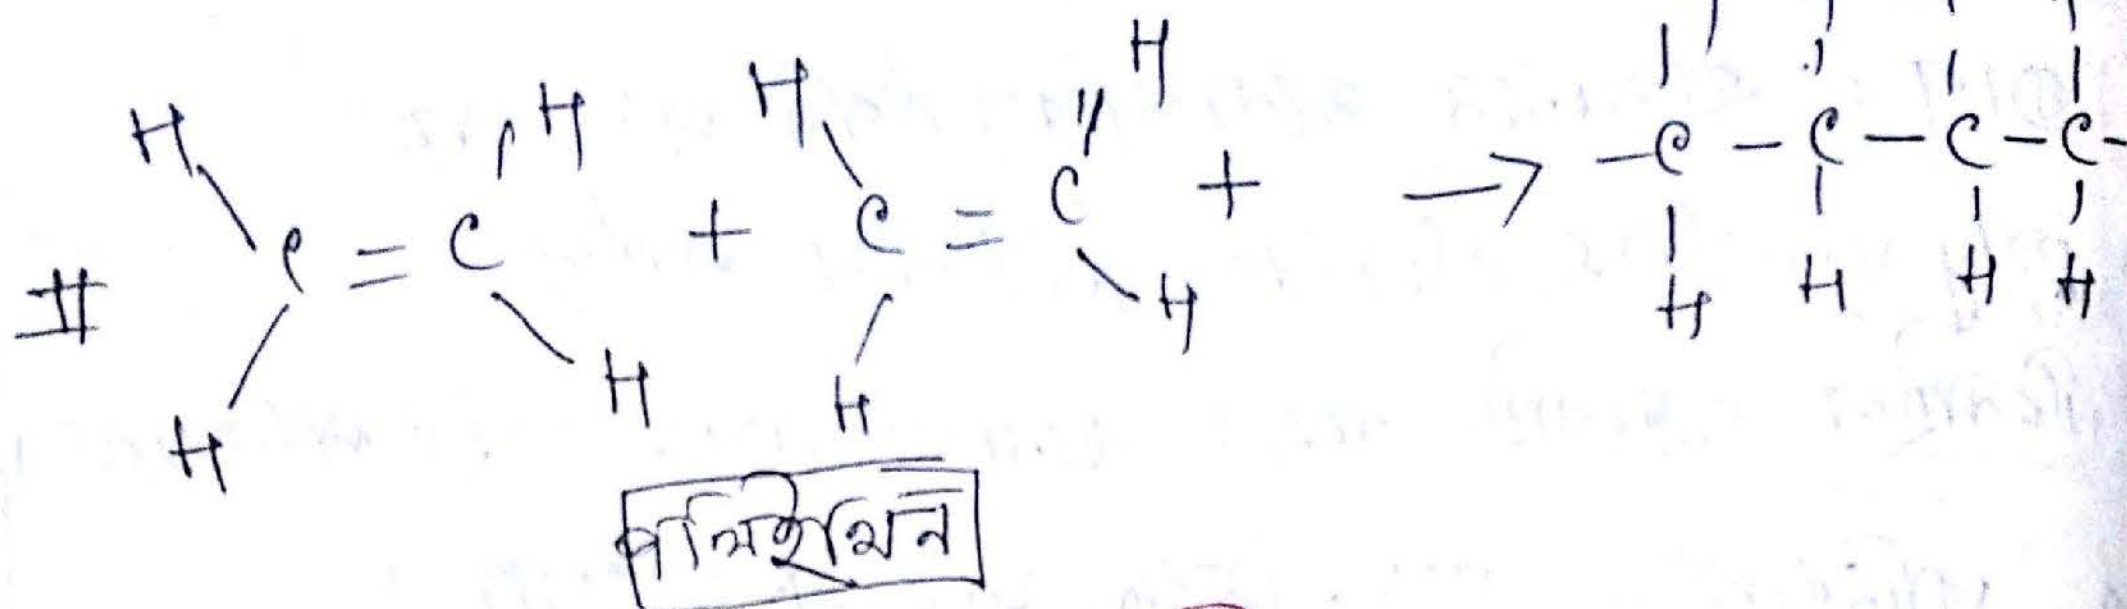 II H₂C = CH₂ + H₂C = CH₂ + → –CH–CH–CH–CH–
পলিইথিন